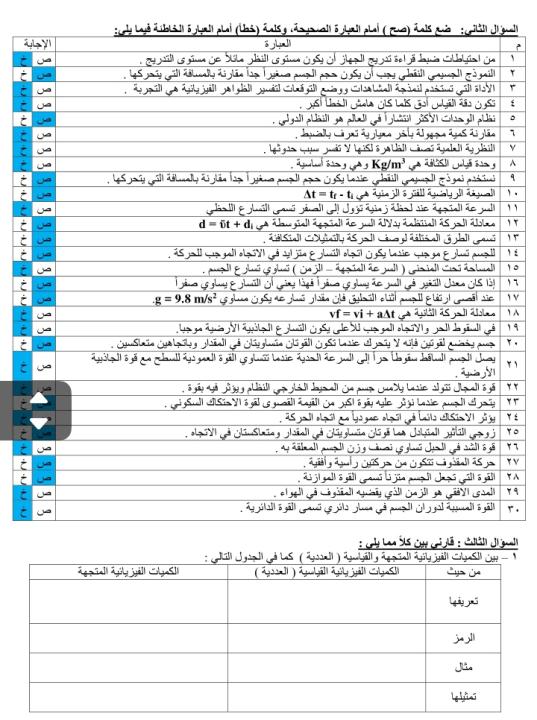 السؤال الثاني: ضع كلمة (صح ) أمام العبارة الصحيحة، وكلمة (خطأ) أمام العبارة الخاطئة فيما يلي:
م العبارة الإجابة
١ من احتياطات ضبط قراءة تدريج الجهاز أن يكون مستوى النظر مائلاً عن مستوى التدريج . ص خ
٢ النموذج الجسيمي النقطي يجب أن يكون حجم الجسم صغيراً جداً مقارنة بالمسافة التي يتحركها . ص خ
٣ الأداة التي تستخدم لنمذجة المشاهدات ووضع التوقعات لتفسير الظواهر الفيزيائية هي التجربة . ص خ
٤ تكون دقة القياس أدق كلما كان هامش الخطأ أكبر . ص خ
٥ نظام الوحدات الأكثر انتشاراً في العالم هو النظام الدولي . ص خ
٦ مقارنة كمية مجهولة بأخر معيارية تعرف بالضبط . ص خ
٧ النظرية العلمية تصف الظاهرة لكنها لا تفسر سبب حدوثها . ص خ
٨ وحدة قياس الكثافة هي Kg/m³ وهي وحدة أساسية . ص خ
٩ نستخدم نموذج الجسيمي النقطي عندما يكون حجم الجسم صغيراً جداً مقارنة بالمسافة التي يتحركها . ص خ
١٠ الصيغة الرياضية للفترة الزمنية هي Δt = tf - ti ص خ
١١ السرعة المتجهة عند لحظة زمنية تؤول إلى الصفر تسمى التسارع اللحظي ص خ
١٢ معادلة الحركة المنتظمة بدلالة السرعة المتجهة المتوسطة هي d = ῡt + di ص خ
١٣ تسمى الطرق المختلفة لوصف الحركة بالتمثيلات المتكافئة . ص خ
١٤ للجسم تسارع موجب عندما يكون اتجاه التسارع متزايد في الاتجاه الموجب للحركة . ص خ
١٥ المساحة تحت المنحنى ( السرعة المتجهة – الزمن ) تساوي تسارع الجسم . ص خ
١٦ إذا كان معدل التغير في السرعة يساوي صفراً فهذا يعني أن التسارع يساوي صفراً ص خ
١٧ عند أقصى ارتفاع للجسم أثناء التحليق فإن مقدار تسارعه يكون مساوي g = 9.8 m/s². ص خ
١٨ معادلة الحركة الثانية هي vf = vi + aΔt ص خ
١٩ في السقوط الحر والاتجاه الموجب للأعلى يكون التسارع الجاذبية الأرضية موجبا. ص خ
٢٠ جسم يخضع لقوتين فإنه لا يتحرك عندما تكون القوتان متساويتان في المقدار وباتجاهين متعاكسين . ص خ
٢١ يصل الجسم الساقط سقوطاً حراً إلى السرعة الحدية عندما تتساوي القوة العمودية للسطح مع قوة الجاذبية ص خ
الأرضية .
٢٢ قوة المجال تتولد عندما يلامس جسم من المحيط الخارجي النظام ويؤثر فيه بقوة .
٢٣ يتحرك الجسم عندما نؤثر عليه بقوة اكبر من القيمة القصوى لقوة الاحتكاك السكوني .
٢٤ يؤثر الاحتكاك دائماً في اتجاه عمودياً مع اتجاه الحركة .
٢٥ زوجي التأثير المتبادل هما قوتان متساويتان في المقدار ومتعاكستان في الاتجاه . ص خ
٢٦ قوة الشد في الحبل تساوي نصف وزن الجسم المعلقة به . ص خ
٢٧ حركة المقذوف تتكون من حركتين رأسية وأفقية . ص خ
٢٨ القوة التي تجعل الجسم متزناً تسمى القوة الموازنة . ص خ
٢٩ المدى الافقي هو الزمن الذي يقضيه المقذوف في الهواء . ص خ
٣٠ القوة المسببة لدوران الجسم في مسار دائري تسمى القوة الدائرية . ص خ
السؤال الثالث : قارني بين كلاً مما يلي :
١ – بين الكميات الفيزيائية المتجهة والقياسية ( العددية ) كما في الجدول التالي :
من حيث الكميات الفيزيائية القياسية ( العددية ) الكميات الفيزيائية المتجهة
تعريفها
الرمز
مثال
تمثيلها